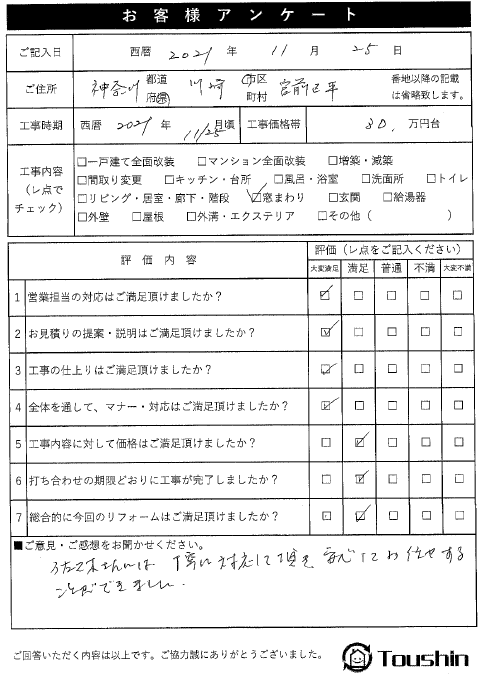 お客様アンケート
ご記入日 西暦 2021 年 11 月 25 日
ご住所 神奈川 都道府県 川崎 市区町村 宮前区平 番地以降の記載は省略致します。
工事時期 西暦 2021 年 11/25 月頃 工事価格帯 30, 万円台
工事内容(レ点でチェック)
□一戸建て全面改装 □マンション全面改装 □増築・減築
□間取り変更 □キッチン・台所 □風呂・浴室 □洗面所 □トイレ
□リビング・居室・廊下・階段 ☑窓まわり □玄関 □給湯器
□外壁 □屋根 □外溝・エクステリア □その他( )
評価内容 評価(レ点をご記入ください)
大変満足 満足 普通 不満 大変不満
1 営業担当の対応はご満足頂けましたか? ☑ □ □ □ □
2 お見積りの提案・説明はご満足頂けましたか? ☑ □ □ □ □
3 工事の仕上りはご満足頂けましたか? ☑ □ □ □ □
4 全体を通して、マナー・対応はご満足頂けますか? ☑ □ □ □ □
5 工事内容に対して価格はご満足頂けましたか? □ ☑ □ □ □
6 打ち合わせの期限どおりに工事が完了しましたか? □ ☑ □ □ □
7 総合的に今回のリフォームはご満足頂けましたか? □ ☑ □ □ □
■ご意見・ご感想をお聞かせください。
佐々木さんは 丁寧に対応して頂き 安心してお任せする
ことができました.
ご回答いただく内容は以上です。ご協力誠にありがとうございました。
Toushin